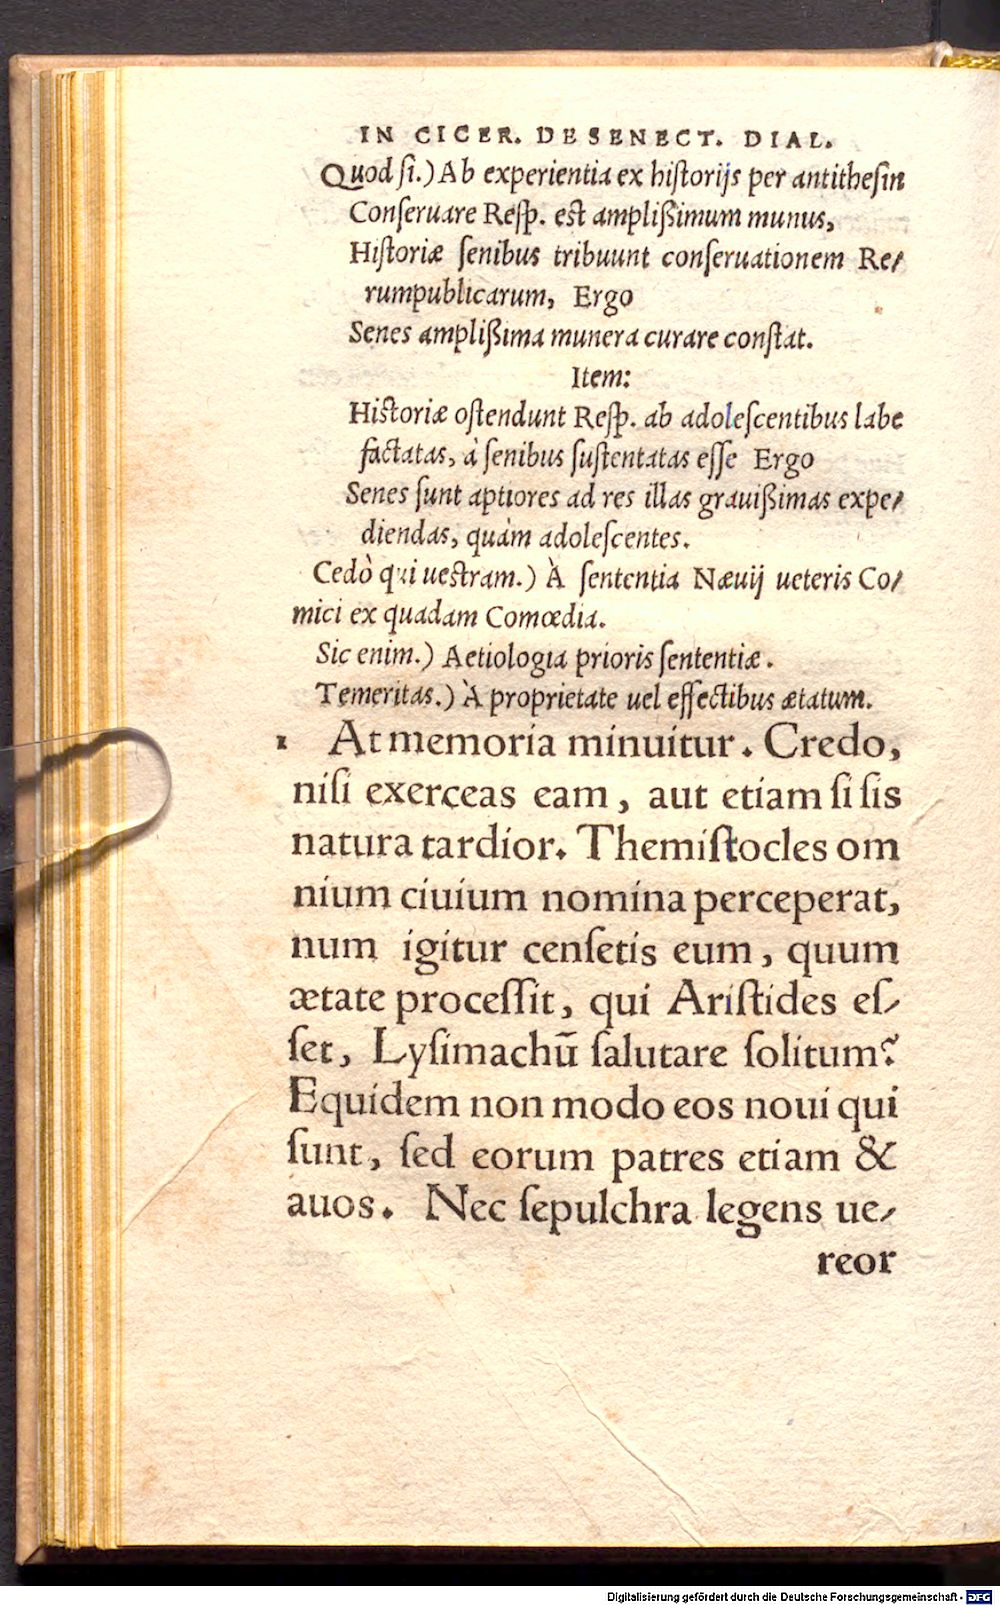 IN CICER. DE SENECT. DIAL.
Quod ſi.) Ab experientia ex hiſtorijs per antitheſin
Conſeruare Reſp. est ampliſsimum munus,
Hiſtoriæ ſenibus tribuunt conſeruationem Re/
rumpublicarum, Ergo
Senes ampliſsima munera curare conſtat.
Item:
Historiæ oſtendunt Reſp. ab adoleſcentibus labe
factatas, à ſenibus ſuſtentatas eſſe Ergo
Senes ſunt aptiores ad res illas grauiſsimas expe/
diendas, quàm adoleſcentes.
Cedò qui uestram.) À ſententia Næuij ueteris Co/
mici ex quadam Comœdia.
Sic enim.) Aetiologia prioris ſententiæ.
Temeritas.) À proprietate uel effectibus ætatum.
1 At memoria minuitur. Credo,
niſi exerceas eam, aut etiam ſi ſis
natura tardior. Themiſtocles om
nium ciuium nomina perceperat,
num igitur cenſetis eum, quum
ætate proceſſit, qui Ariſtides eſ/
ſet, Lyſimachū ſalutare ſolitum?
Equidem non modo eos noui qui
ſunt, ſed eorum patres etiam &
auos. Nec ſepulchra legens ue/
reor
Digitalisierung gefördert durch die Deutsche Forschungsgemeinschaft - DFG